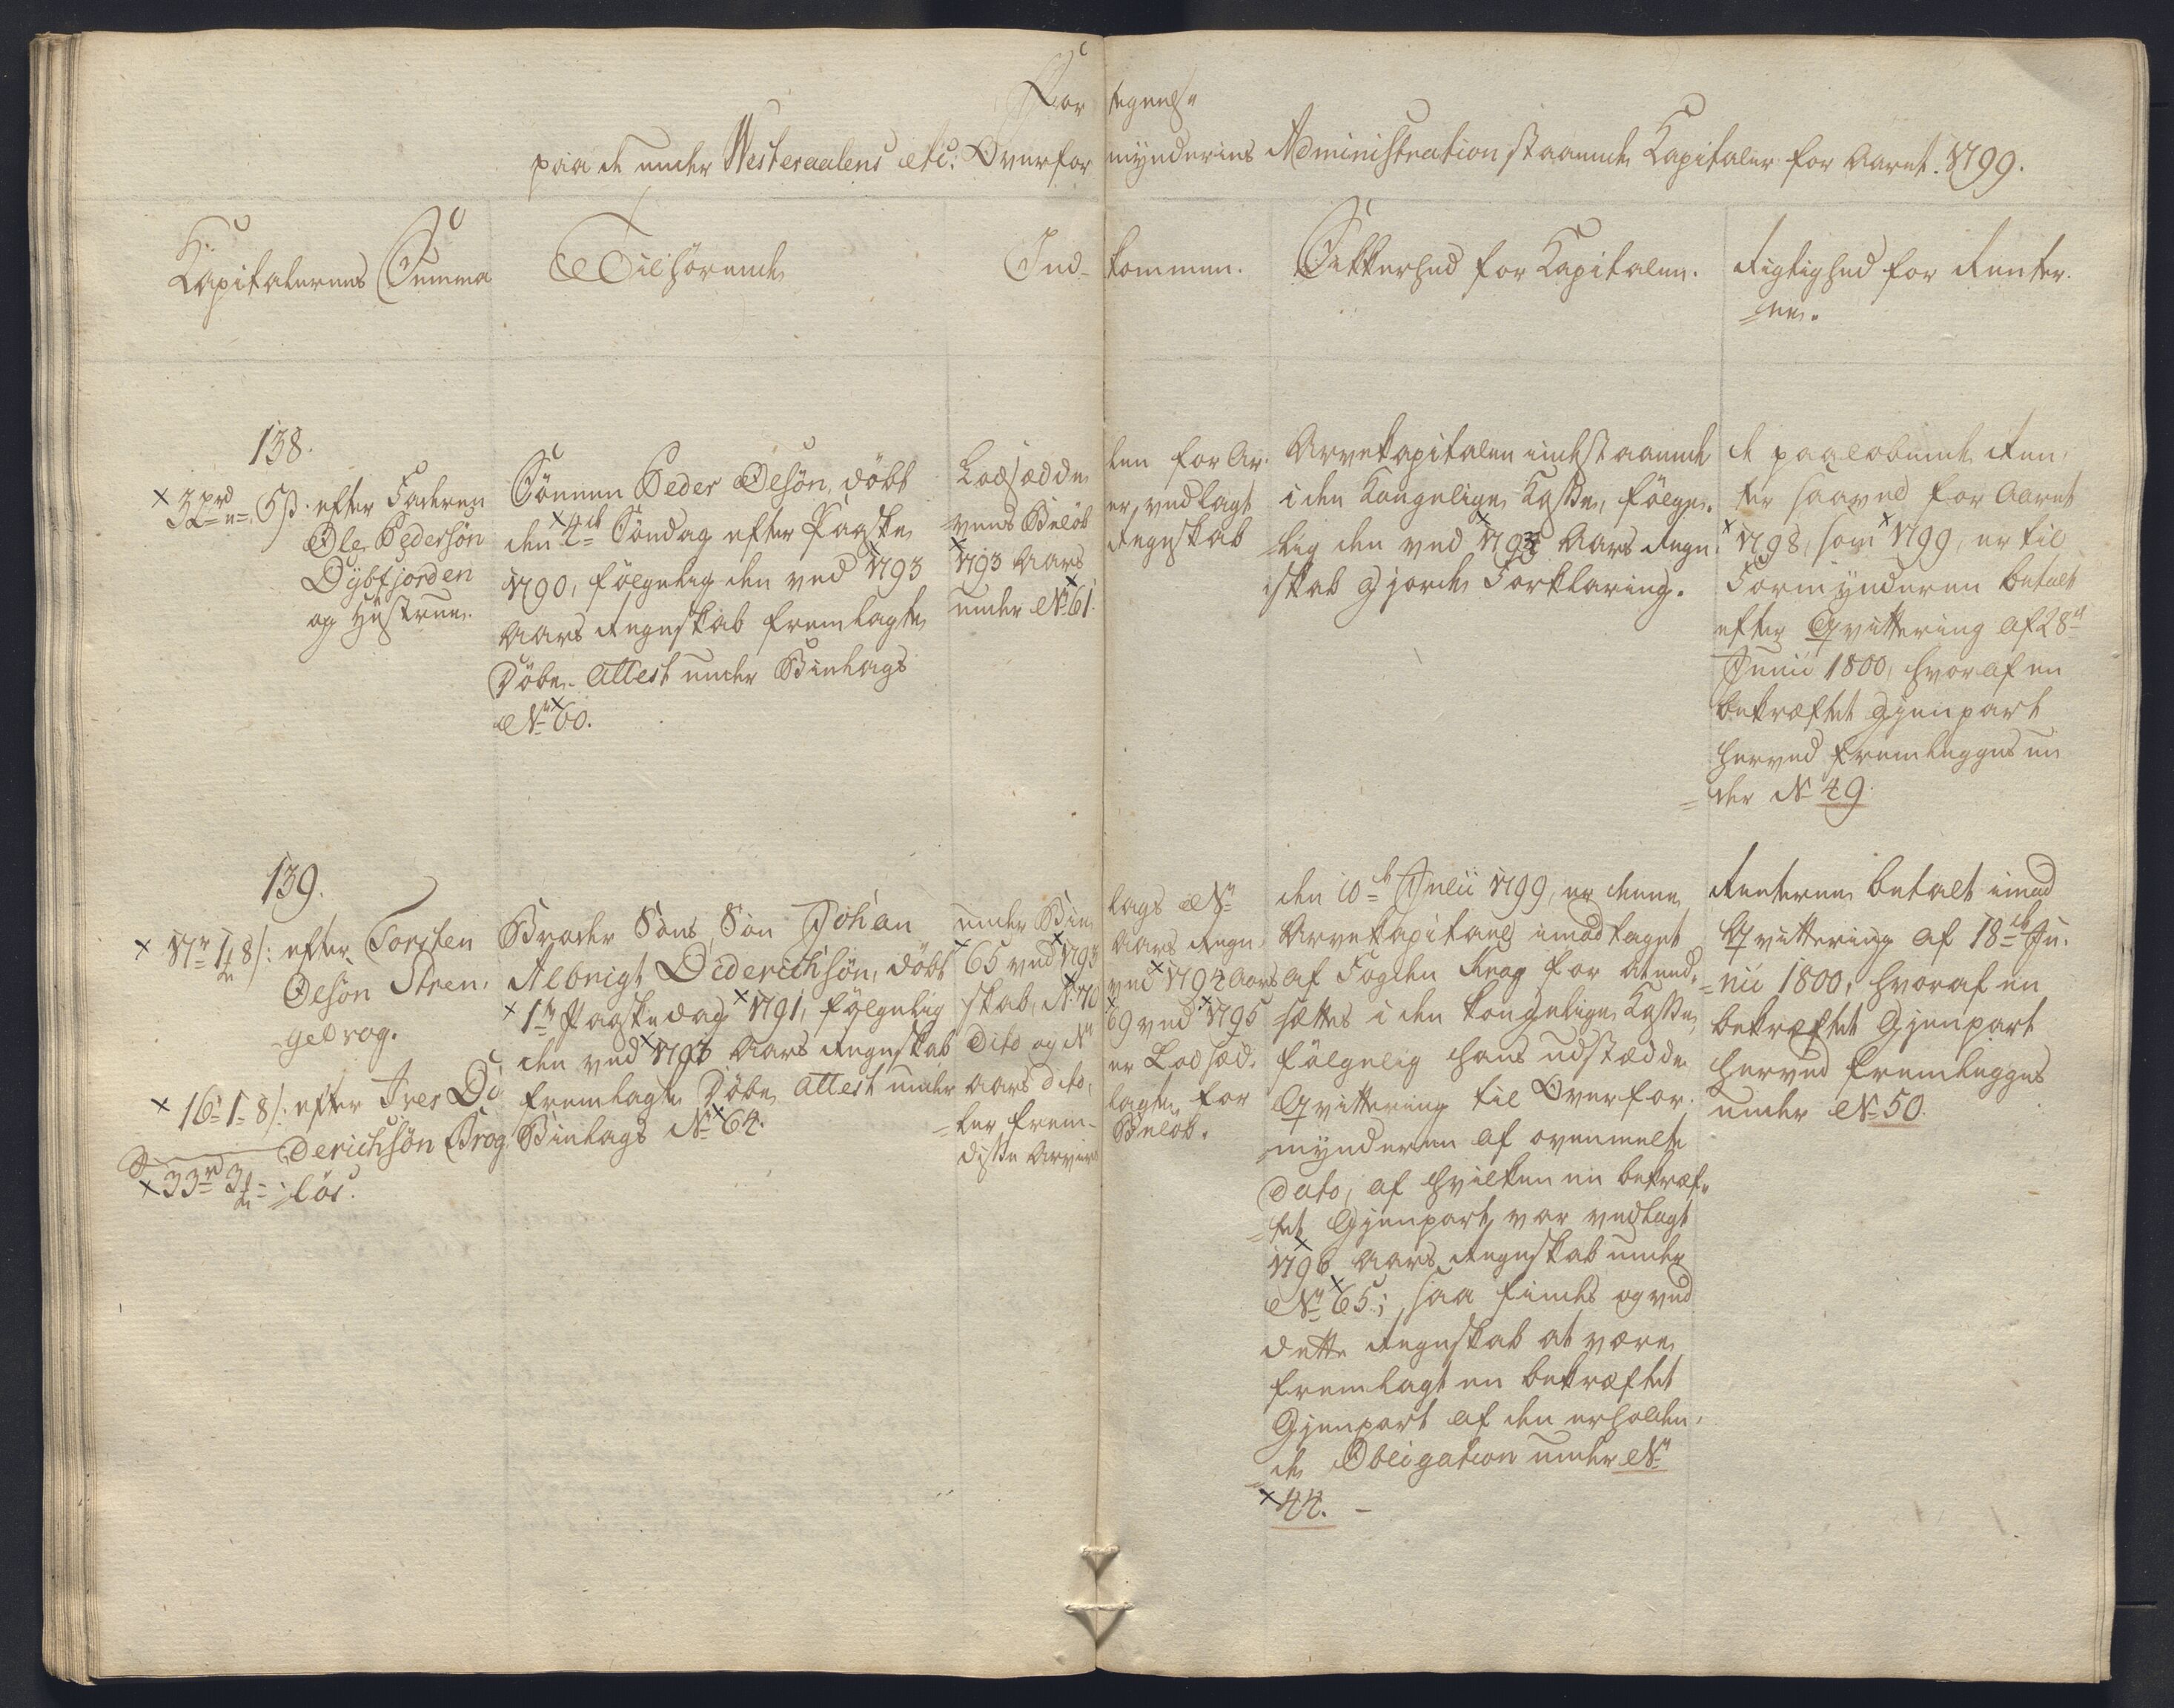 Fortegnelse
paa de under Westeraalens etc: Overformynderies Administration staaende Kapitaler for Aaret 1799.
Kapitalernes Summa
Tilhørende
Indkommen.
Sikkerhed for Kapitalen.
Rigtighed for Renter
=ne.
138.
efter Faderen
Ole Pedersøn
Dÿbfjorden
og Hustrue.
Sönnen Peder Olsön, döbt
den 4de Søndag efter Paaske
1790, følgelig den ved 1793
Aars Regnskab fremlagte
Döbe-Attest under Bielags
No 60.
Lodsedde
vens Beløb
1793 Aars
under No 61.
len for Ar-
er, vedlagt
Regnskab
Arvekapitalen indestaaende
i den Kongelige Kasse, følge-
lig den ved 1794 Aars Regn
skab gjorde Forklaring.
de paaløbende Ren-
ter saavel for Aaret
1798, som 1799, er til
Formynderen betalt
efter Qvittering af 28de
Junii 1800, hvoraf en
bekræftet Gjenpart
herved fremlegges un
=der No 49.
139.
17rd 1 8/: efter Torsten
Olsön Stren-
gelvog.
16 1 8/: efter Ives Di
derichsön Brog
33rd 3
=lös.
Broder Söns Sön Johan
Albrigt Diderichsön, döbt
1te Paaskedag 1791, følgelig
den ved 1793 Aars Regnskab
fremlagte Döbe Attest under
Bielags No 64.
under Bie
65 ved 1793
skab, No 70
dito og No
Aars dito,
=ler frem-
disse Arve
lags No
Aars Regn-
ved 1794 Aars
69 ved 1795
er Lodsed-
lagte for
Beløb.
den 10de Julii 1799, er denne
Arvekapital imodtaget
af Fogden Krog for at ind-
sættes i den Kongelige Kasse,
følgelig hans udstædde
Qvittering til Overfor-
=mynderen af ovenmelte
Dato, af hvilken en bekræf-
=tet Gjenpart var vedlagt
1796 Aars Regnskab under
No 65; saa findes og ved
dette Regnskab at være
fremlagt en bekræftet
Gjenpart af den erholden-
=de Obligation under No
44. -
Renterne betalt imod
Qvittering af 18de Ju-
=nii 1800, hvoraf en
bekræftet Gjenpart
herved fremlegges
under No 50.